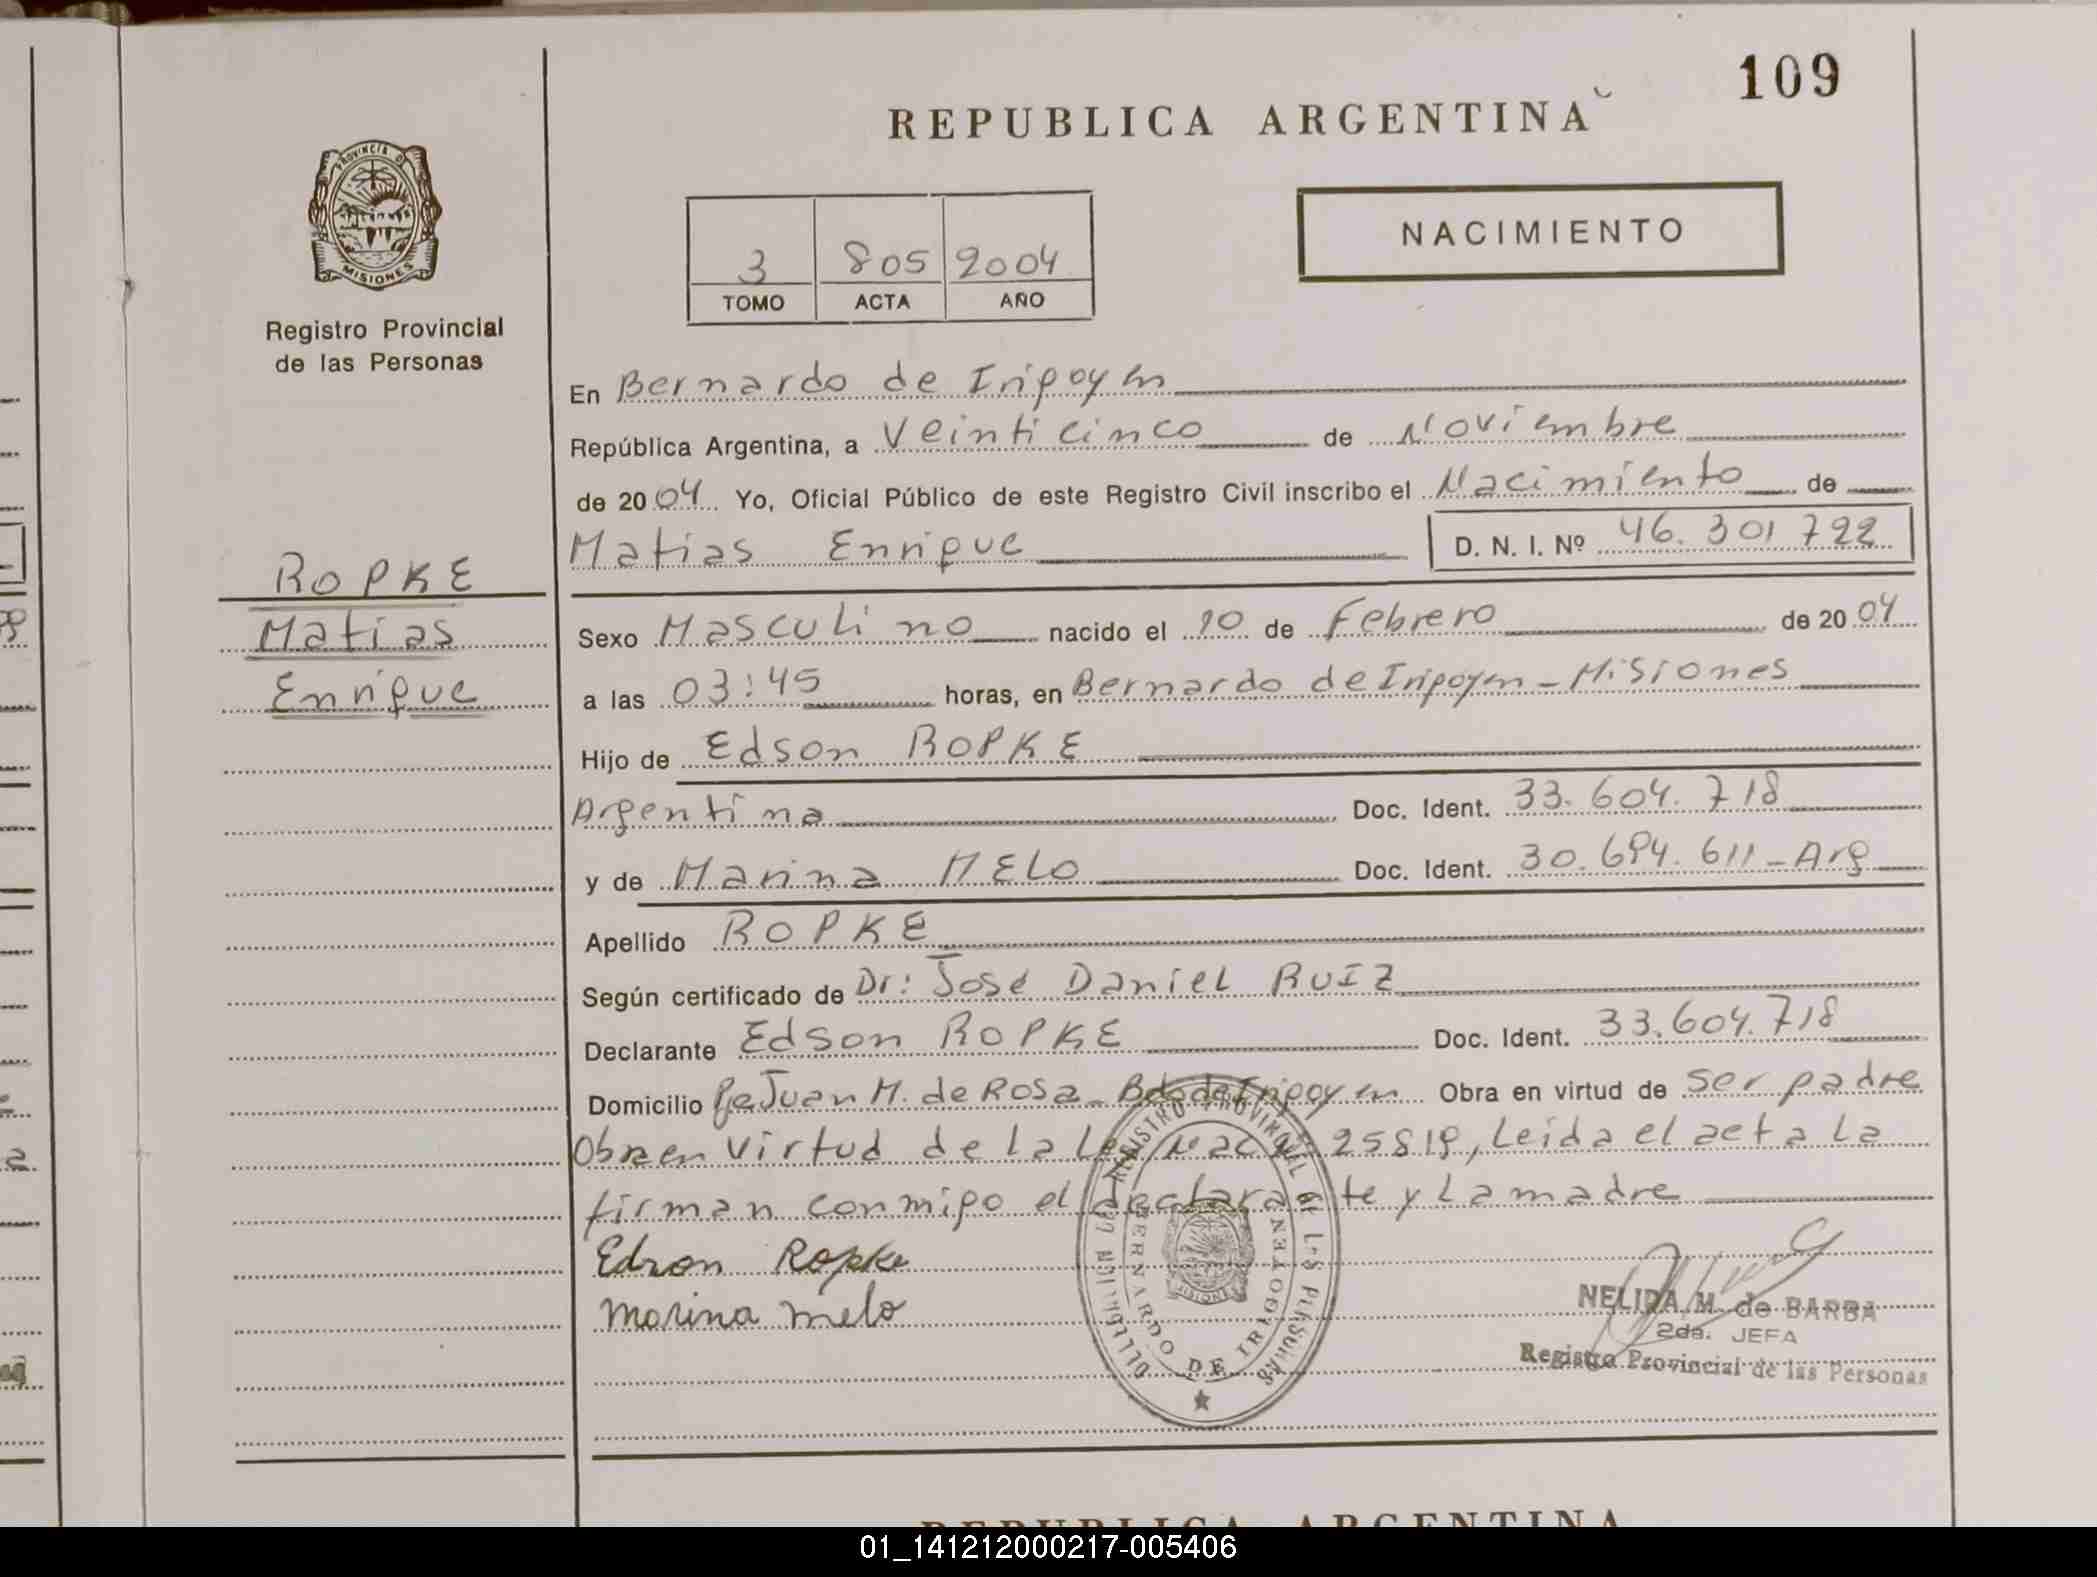 109
REPUBLICA ARGENTINA
PROVINCIA D
MISIONES
Registro Provincial
de las Personas
3 805 2004
TOMO ACTA AÑO
NACIMIENTO
En Bernardo de Irigoyen
República Argentina, a Veinticinco de Noviembre
de 2004 Yo, Oficial Público de este Registro Civil inscribo el Nacimiento de
Matias Enrique D. N. I. Nº 46.301.722
ROPKE
Matias
Enrique
Sexo Masculino nacido el 20 de Febrero de 2004
a las 03:45 horas, en Bernardo de Irigoyen - Misiones
Hijo de Edson ROPKE
Argentina Doc. Ident. 33.604.718
y de Marina MELO Doc. Ident. 30.694.611 - Arg
Apellido ROPKE
Según certificado de Dr: José Daniel RUIZ
Declarante Edson ROPKE Doc. Ident. 33.604.718
Domicilio Juan M. de Rosa - Bdo de Irigoyen Obra en virtud de ser padre
Obra en virtud de la Ley Nac Nº 25819, Leida el acta La
firman conmigo el declarante y La madre
Edson Ropke
Marina Melo
REGISTRO PROVINCIAL DE LAS PERSONAS
BERNARDO DE IRIGOYEN
MISIONES
NELIDA M. de BARBA
2da. JEFA
Registro Provincial de las Personas
REPUBLICA ARGENTINA
01_141212000217-005406